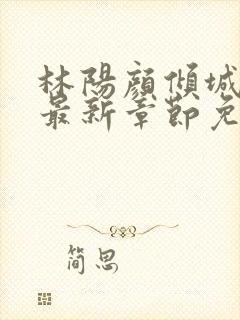 林陽顏傾城
最新章節免
简思